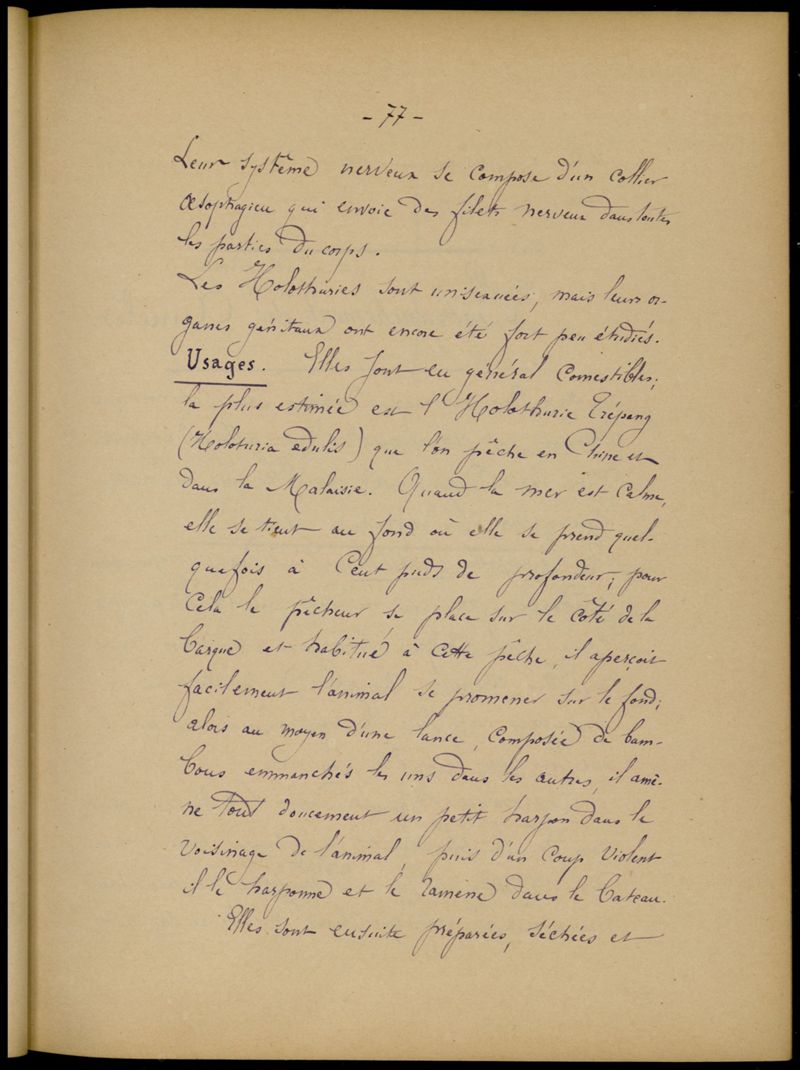 - 77 -
Leur système nerveux se compose d'un collier
œsophagien qui envoie des filets nerveux dans toutes
les parties du corps.
Les Holothuries sont unisexuées, mais leurs or-
ganes génitaux ont encore été fort peu étudiés.
Usages. Elles sont en général comestibles;
la plus estimée est l'Holothurie Trépang
(Holoturia edulis) que l'on pêche en Chine et
dans la Malaisie. Quand la mer est calme,
elle se tient au fond où elle se prend quel-
quefois à cent pieds de profondeur; pour
cela le pêcheur se place sur le côté de la
barque et habitué à cette pêche, il aperçoit
facilement l'animal se promener sur le fond;
alors au moyen d'une lance, composée de bam-
bous emmanchés les uns dans les autres, il amè-
ne tout doucement un petit harpon dans le
voisinage de l'animal, puis d'un coup violent
il le harponne et le ramène dans le bateau.
Elles sont ensuite préparées, séchées et